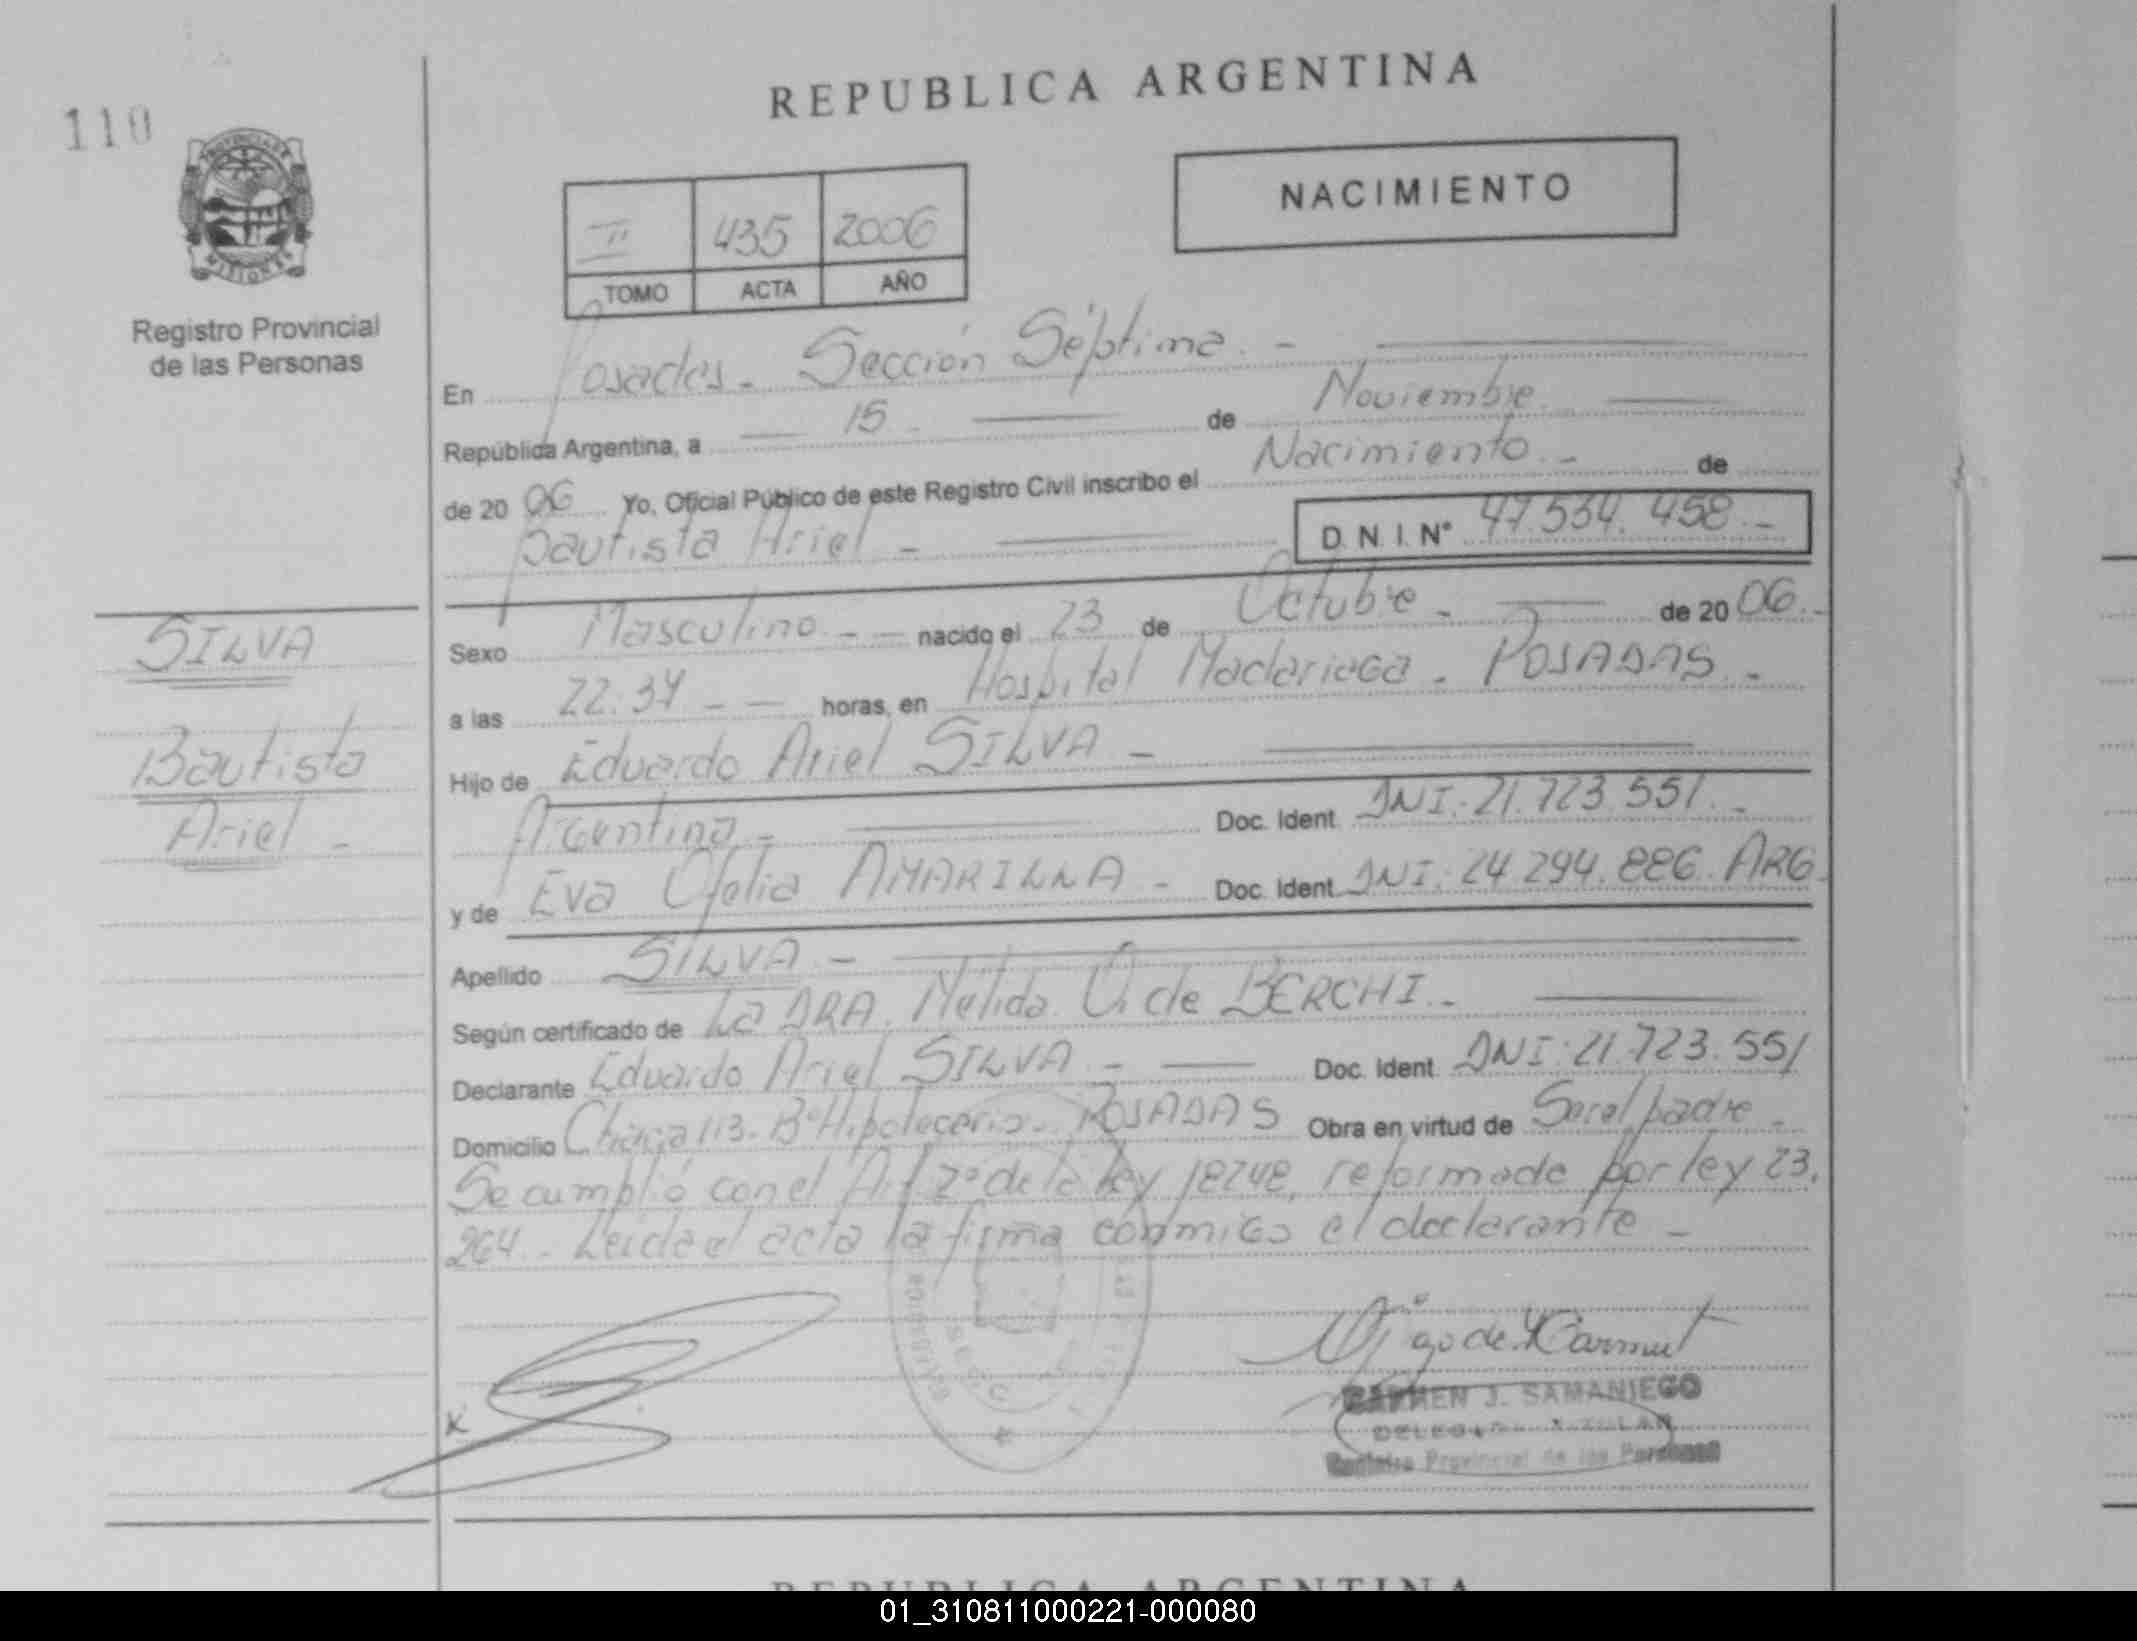 110
REPUBLICA ARGENTINA
NACIMIENTO
II 435 2006
TOMO ACTA AÑO
MISIONES
Registro Provincial
de las Personas
En Posadas. Sección Séptima. -
República Argentina, a 15 de Noviembre
de 2006 Yo, Oficial Público de este Registro Civil inscribo el Nacimiento. - de
Bautista Ariel - D. N. I. N° 47.534.458.-
SILVA
Bautista
Ariel -
Sexo Masculino. - - nacido el 23 de Octubre - de 2006.-
a las 22:34 - - horas, en Hospital Madariaga. POSADAS. -
Hijo de Eduardo Ariel SILVA -
Argentino - Doc. Ident. DNI: 21.723.551. -
y de Eva Ofelia AMARILLA - Doc. Ident. DNI: 24.294.886. ARG.
Apellido SILVA -
Según certificado de La DRA. Nelida V. de BERCHI. -
Declarante Eduardo Ariel SILVA. - Doc. Ident. DNI: 21.723.551
Domicilio Chacra 113. B° Hipotecario. POSADAS Obra en virtud de Ser el padre -
Se cumplió con el Art 2° de la ley 18248, reformada por ley 23.
264. Leida el acta la firma conmigo el declarante -
X
CARMEN J. SAMANIEGO
DELEGADA
Registro Provincial de las Personas
REPUBLICA ARGENTINA
01_310811000221-000080